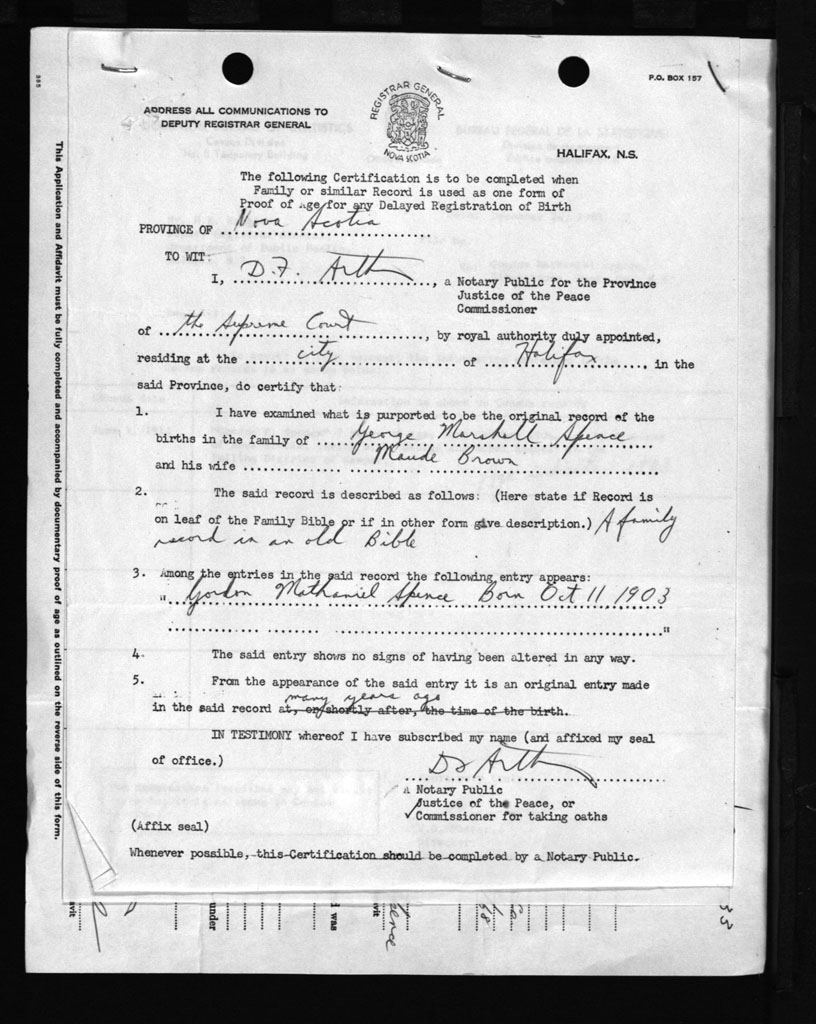 P.O. BOX 157
ADDRESS ALL COMMUNICATIONS TO
DEPUTY REGISTRAR GENERAL
REGISTRAR GENERAL
NOVA SCOTIA
HALIFAX, N.S.
The following Certification is to be completed when
Family or similar Record is used as one form of
Proof of Age for any Delayed Registration of Birth
PROVINCE OF Nova Scotia
TO WIT:
I, D.F. , a Notary Public for the Province
Justice of the Peace
Commissioner
of the Supreme Court, by royal authority duly appointed,
residing at the city of Halifax, in the
said Province, do certify that:
1. I have examined what is purported to be the original record of the
births in the family of George Marshall Spence
and his wife Maude Brown
2. The said record is described as follows: (Here state if Record is
on leaf of the Family Bible or if in other form give description.) A family
record in an old Bible
3. Among the entries in the said record the following entry appears:
" Gordon Mathaniel Spence Born Oct 11 1903
"
4. The said entry shows no signs of having been altered in any way.
5. From the appearance of the said entry it is an original entry made
many years ago
in the said record at, or shortly after, the time of the birth.
IN TESTIMONY whereof I have subscribed my name (and affixed my seal
of office.)
A Notary Public
Justice of the Peace, or
✓Commissioner for taking oaths
(Affix seal)
Whenever possible, this Certification should be completed by a Notary Public.
This Application and Affidavit must be fully completed and accompanied by documentary proof of age as outlined on the reverse side of this form.
under
I was
33